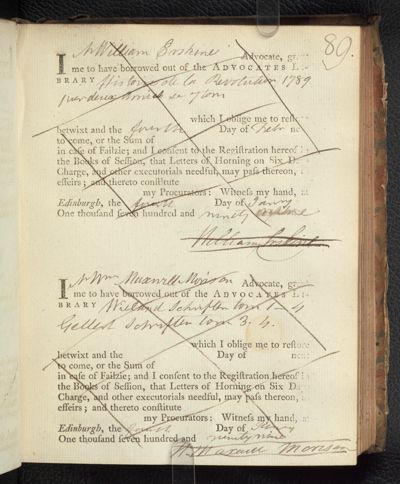 89.
I Mr William Erskine Advocate, gr
me to have borrowed out of the ADVOCATES LI-
BRARY Histoire de la Revolution 1789
par deux amis
which I oblige me to restore
betwixt and the Day of Febr ne
to come, or the Sum of
in case of Failzie; and I consent to the Registration hereof i
the Books of Session, that Letters of Horning on Six Da
Charge, and other executorials needful, may pass thereon, a
effeirs; and thereto constitute
my Procurators: Witness my hand, at
Edinburgh, the fourth Day of Janry
One thousand seven hundred and ninety nine
William Erskine
I Mr Wm Maxwell Morison Advocate, gr
me to have borrowed out of the ADVOCATES LI-
BRARY Wieland Schriften tom 1–4
Gellert Schriften tom. 3. 4.
which I oblige me to restore
betwixt and the Day of nex
to come, or the Sum of
in case of Failzie; and I consent to the Registration hereof i
the Books of Session, that Letters of Horning on Six Da
Charge, and other executorials needful, may pass thereon, a
effeirs; and thereto constitute
my Procurators: Witness my hand, at
Edinburgh, the fourth Day of Janry
One thousand seven hundred and ninety nine
W. Maxwell Morison